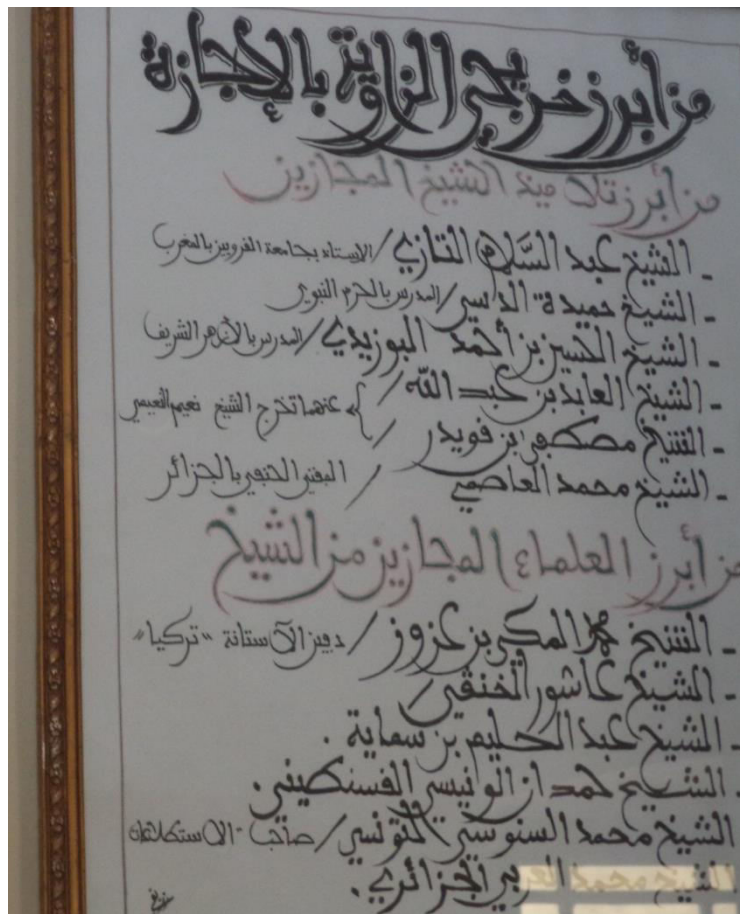 من أبرز خريجي الزاوية بالإجازة
من أبرز تلاميذ الشيخ المجازين
- الشيخ عبد السلام التازي / الاستاذ بجامعة القرويين بالمغرب
- الشيخ حميدة / المدرس بالحرم النبوي
- الشيخ الحسين بن أحمد البوزيدي / المدرس بالأزهر الشريف
- الشيخ العابد بن عبد الله /
عنهما تخرج الشيخ نعيم النعيمي
- الشيخ مصطفى بن قويدر /
- الشيخ محمد العاصمي / المفتي الحنفي بالجزائر
من أبرز العلماء المجازين من الشيخ
- الشيخ محمد المكي بن عزوز / دفين الآستانة "تركيا"
- الشيخ عاشور الخنقي
- الشيخ عبد الحليم بن سماية .
- الشيخ حمدان الونيسي القسنطيني .
الشيخ محمد السنوسي التونسي / صاحب
الشيخ محمد العربي الجزائري .